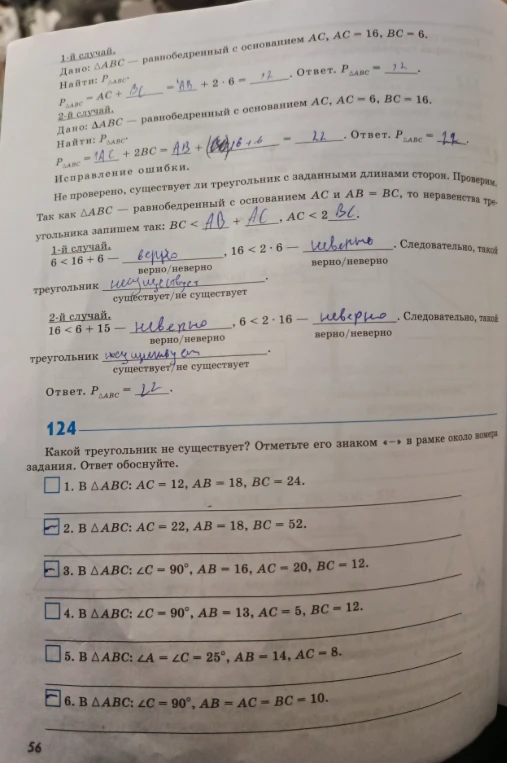 1-й случай.
Дано: △ABC — равнобедренный с основанием AC, AC = 16, BC = 6.
Найти: P△ABC.
P△ABC = AC + BC = AB + 2 · 6 = 12. Ответ. P△ABC = 12.
2-й случай.
Дано: △ABC — равнобедренный с основанием AC, AC = 6, BC = 16.
Найти: P△ABC.
P△ABC = AC + 2BC = AB + 16 + 6 = 22. Ответ. P△ABC = 22.
Исправление ошибки.
Не проверено, существует ли треугольник с заданными длинами сторон. Проверим.
Так как △ABC — равнобедренный с основанием AC и AB = BC, то неравенства тре-
угольника запишем так: BC < AB + AC, AC < 2 BC.
1-й случай.
6 < 16 + 6 — верно, 16 < 2 · 6 — неверно. Следовательно, такой
верно/неверно верно/неверно
треугольник несуществует.
существует/не существует
2-й случай.
16 < 6 + 15 — неверно, 6 < 2 · 16 — неверно. Следовательно, такой
верно/неверно верно/неверно
треугольник
существует/не существует
Ответ. P△ABC = 22.
124
Какой треугольник не существует? Отметьте его знаком «–» в рамке около номера
задания. Ответ обоснуйте.
1. В △ABC: AC = 12, AB = 18, BC = 24.
– 2. В △ABC: AC = 22, AB = 18, BC = 52.
– 3. В △ABC: ∠C = 90°, AB = 16, AC = 20, BC = 12.
4. В △ABC: ∠C = 90°, AB = 13, AC = 5, BC = 12.
5. В △ABC: ∠A = ∠C = 25°, AB = 14, AC = 8.
– 6. В △ABC: ∠C = 90°, AB = AC = BC = 10.
56